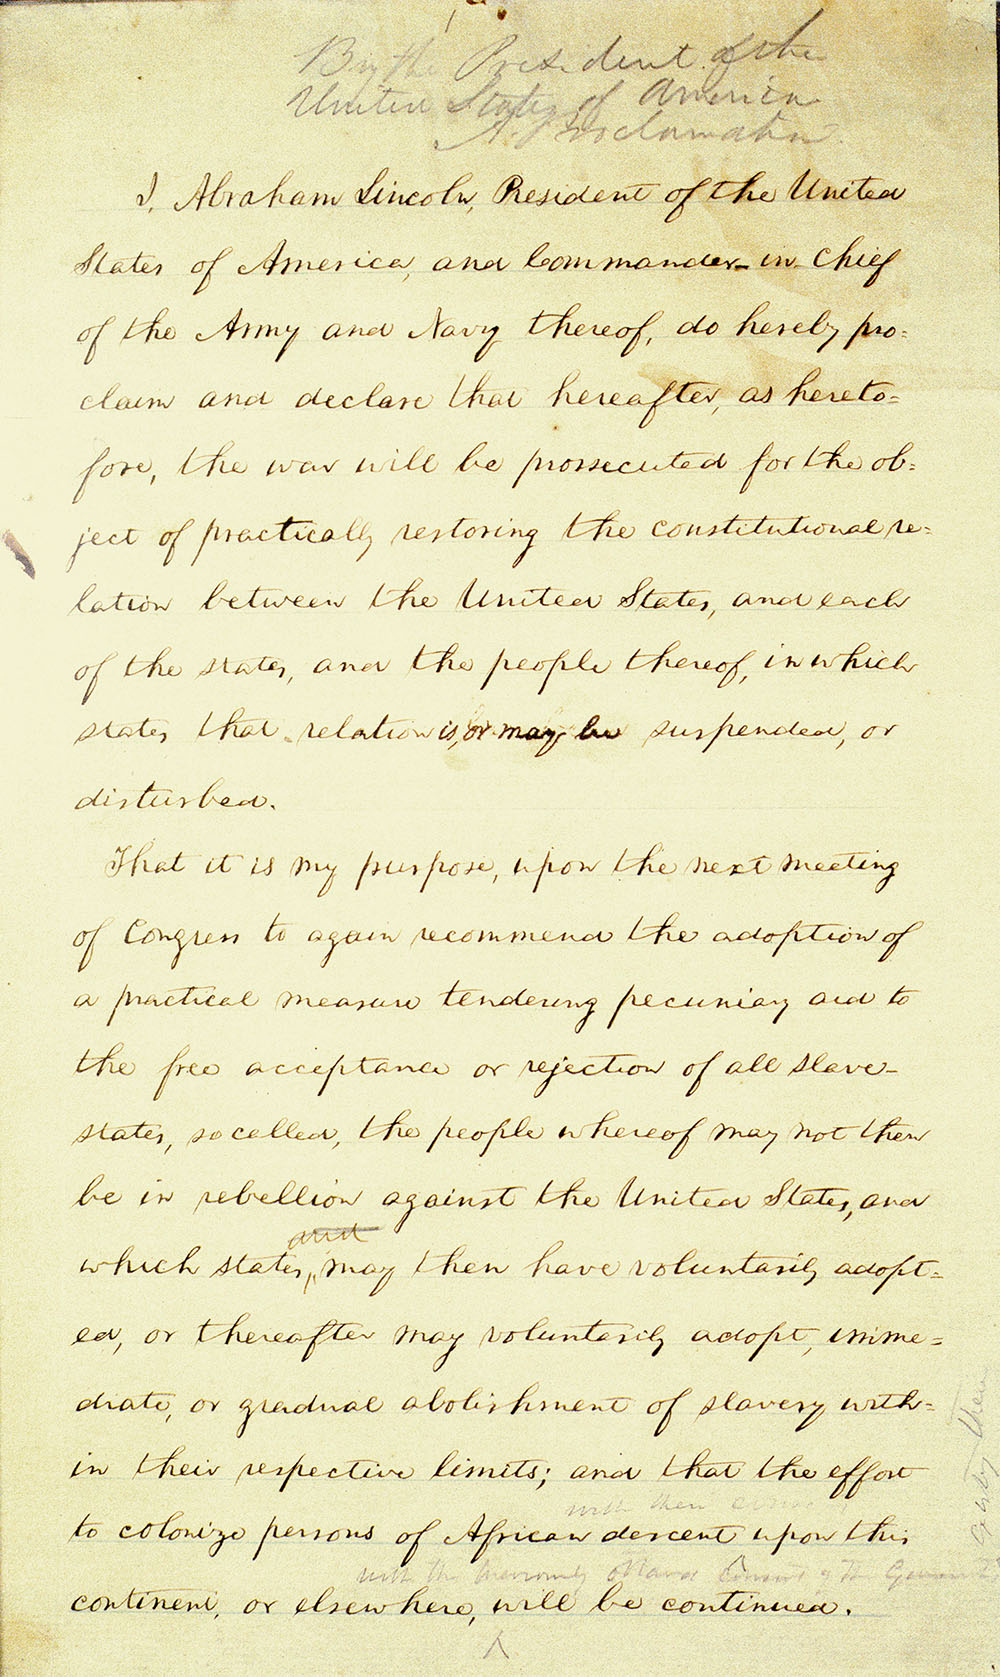 By the President of the
United States of America
A Proclamation
I, Abraham Lincoln, President of the United
States of America, and Commander-in-Chief
of the Army and Navy thereof, do hereby pro=
claim and declare that hereafter, as hereto=
fore, the war will be prossecuted for the ob=
ject of practically restoring the constitutional re=
lation between the United States, and each
of the states, and the people thereof, in which
states that relation is, or may be suspended, or
disturbed.
That it is my purpose, upon the next meeting
of Congress to again recommend the adoption of
a practical measure tendering pecuniary aid to
the free acceptance or rejection of all slave-
states, so called, the people whereof may not then
be in rebellion against the United States, and
and
which states, may then have voluntarily adopt=
ed, or thereafter may voluntarily adopt, imme=
diate, or gradual abolishment of slavery with=
in their respective limits; and that the effort
with their consent
to colonize persons of African descent upon this
with the previously obtained consent of the Governments
continent, or elsewhere, will be continued.